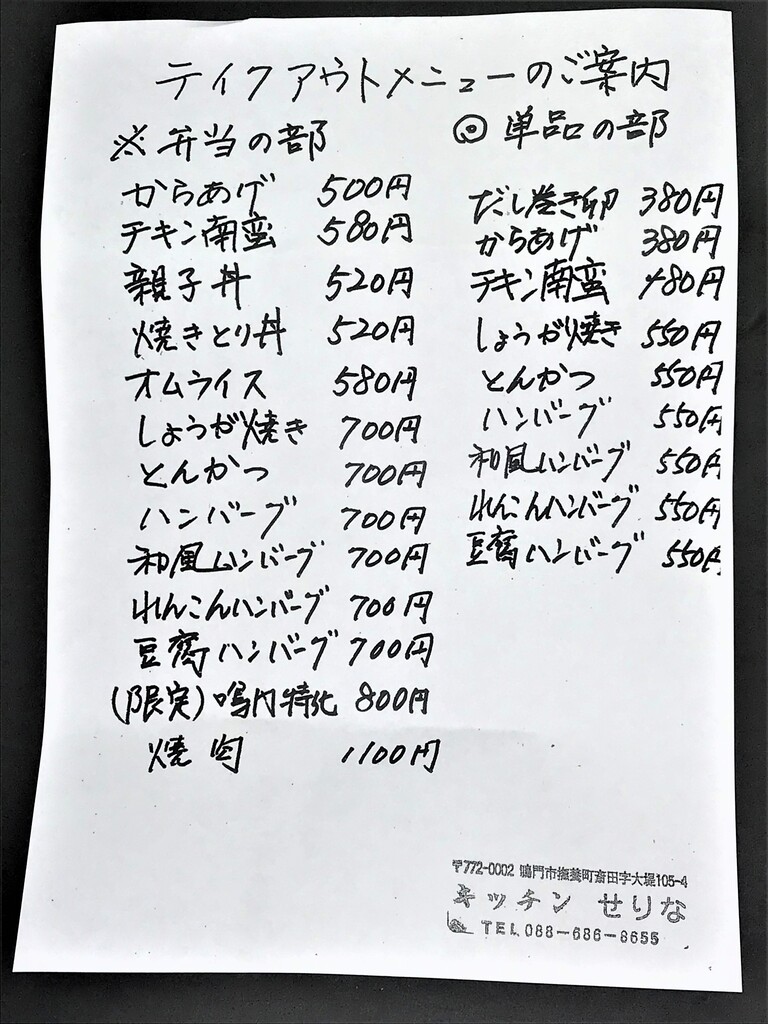 ティクアウトメニューのご案内
※弁当の部
からあげ 500円
チキン南蛮 580円
親子丼 520円
焼きとり丼 520円
オムライス 580円
しょうが焼き 700円
とんかつ 700円
ハンバーグ 700円
和風ハンバーグ 700円
れんこんハンバーグ 700円
豆腐ハンバーグ 700円
(限定)鳴門特化 800円
焼肉 1100円
◎単品の部
だし巻き卵 380円
からあげ 380円
チキン南蛮 480円
しょうが焼き 550円
とんかつ 550円
ハンバーグ 550円
和風ハンバーグ 550円
れんこんハンバーグ 550円
豆腐ハンバーグ 550円
〒772-0002 鳴門市撫養町斎田字大堤105-4
キッチン せりな
TEL 088-686-8655